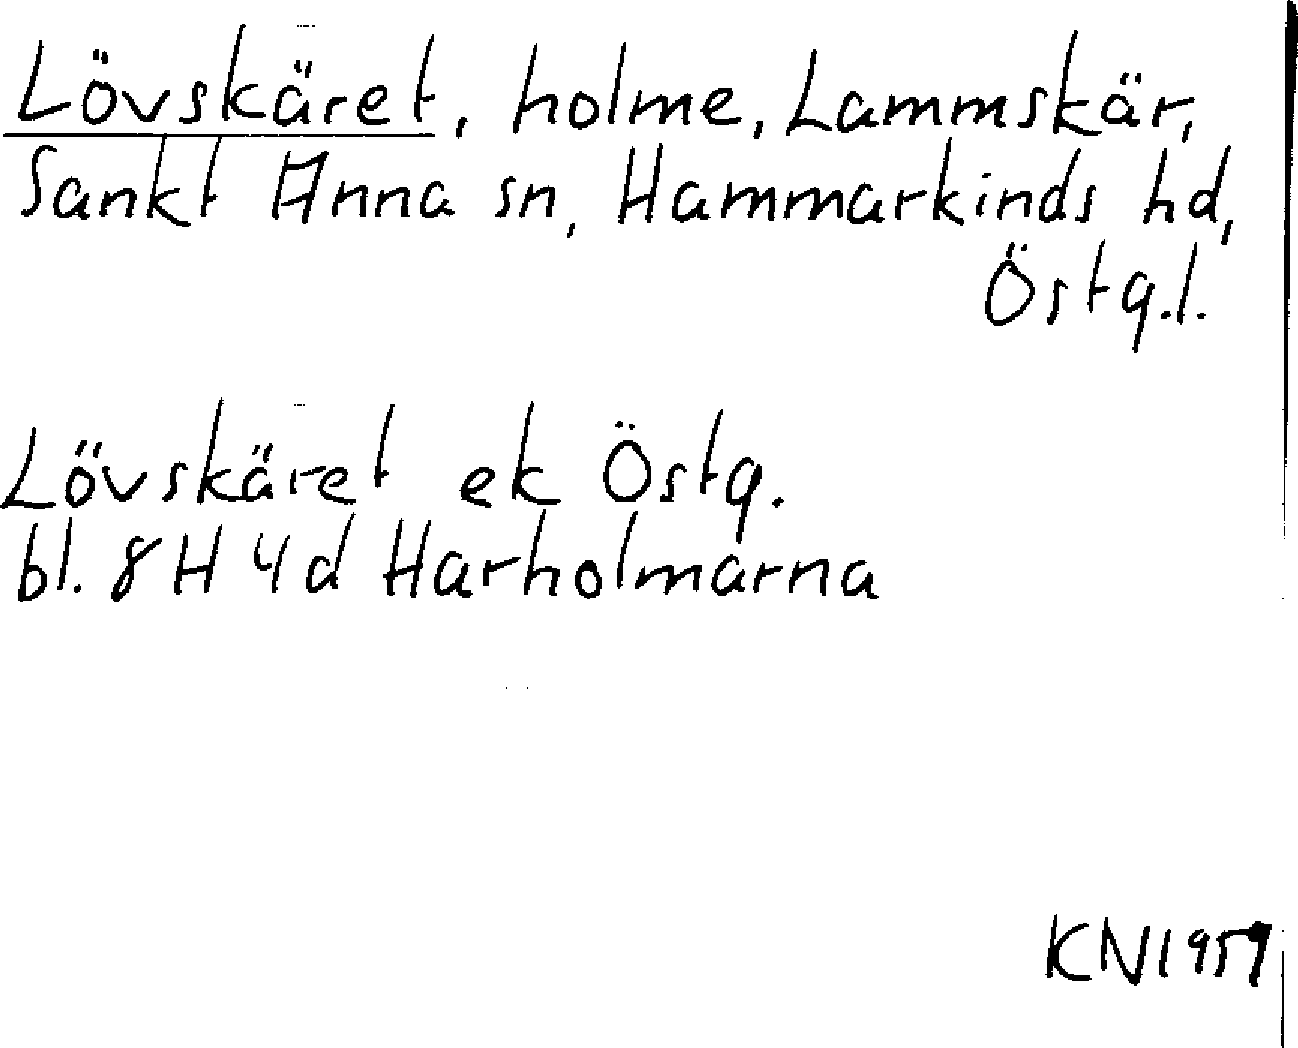 Lövskäret, holme, Lammskär,
Sankt Anna sn, Hammarkinds hd,
Östg.l.
Lövskäret ek Östg.
bl. 8H 4d Harholmarna
KN1959